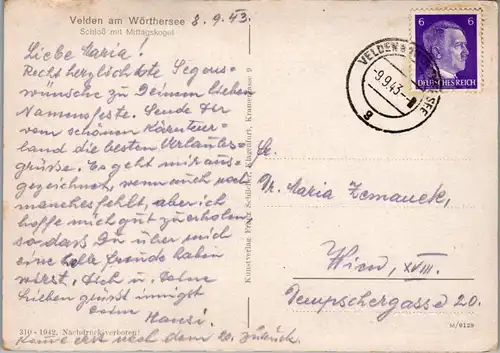 Velden am Wörthersee 8.9.43.
Schloß mit Mittagskogel
Liebe Maria!
Recht herzlichste Segens-
wünsche zu Deinem lieben
Namensfeste. Sende Dir
vom schönen Kärntner-
land die besten Urlaubs-
grüße. Es geht mir aus-
gezeichnet, wenn auch noch
manches fehlt, aber ich
hoffe mich gut zu erholen
so dass Du über mich
eine helle Freude haben
wirst. Dich u. Deine
Lieben grüsst innigst
Deine
Hansi.
310 - 1942. Nachdruck verboten!
Komme erst nach dem 20. zurück.
Kunstverlag Franz Schilcher, Klagenfurt, Kramergasse 9
6 6
DEUTSCHES REICH
VELDEN
-9.9.43.-8
g
Dr. Maria Zemanek,
Wien, XVIII.
Dempschergasse 20.
M/9129